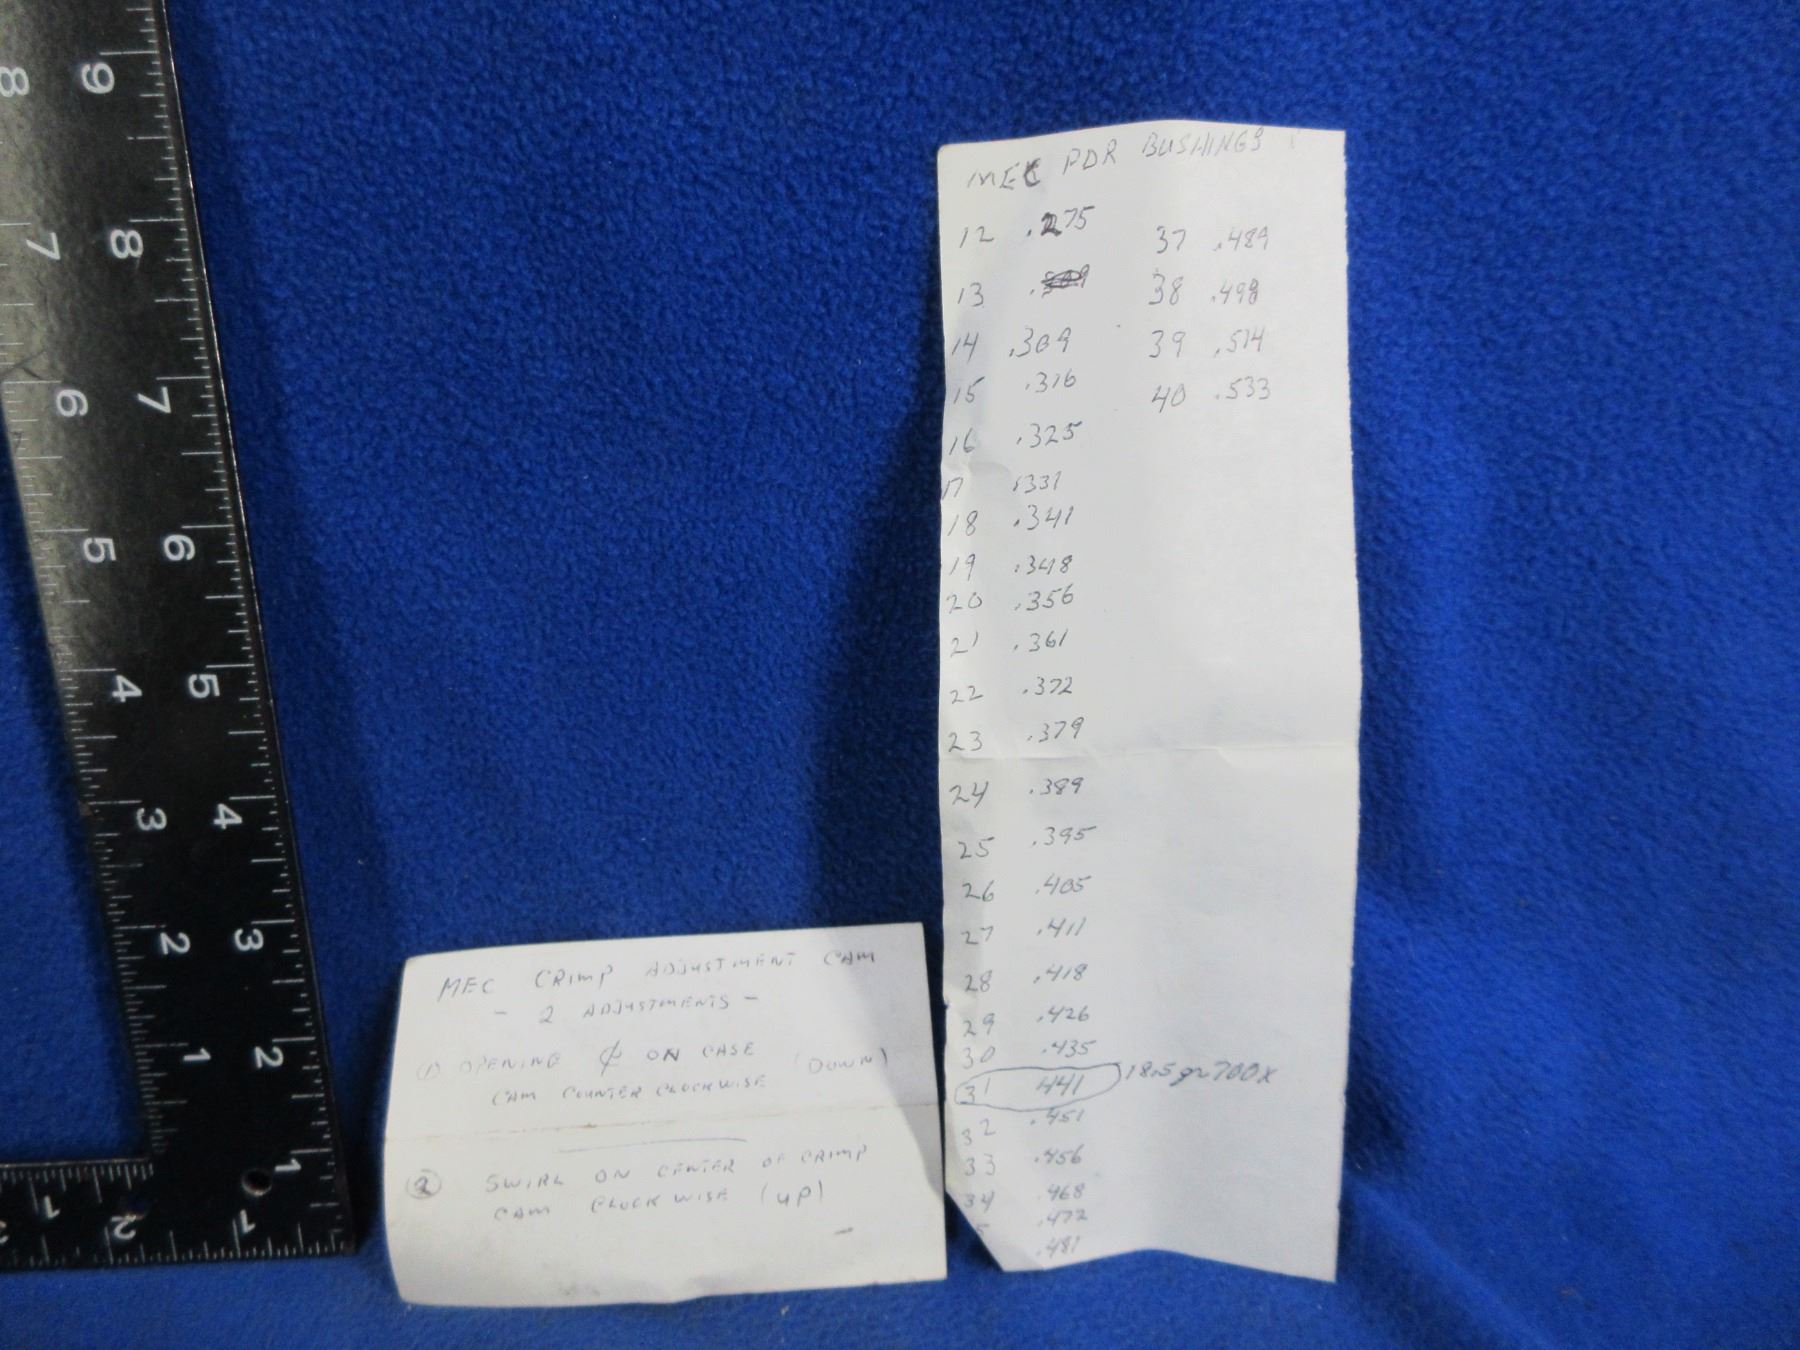 MEC PDR BUSHINGS
12 .275
13
14 .309
15 .316
16 .325
17 .331
18 .341
19 .348
20 .356
21 .361
22 .372
23 .379
24 .389
25 .395
26 .405
27 .411
28 .418
29 .426
30 .435
31 .441 18.5 gr 700x
32 .451
33 .456
34 .468
5 .472
.481
37 .489
38 .498
39 .514
40 .533
MEC CRIMP ADJUSTMENT CAM
- 2 ADJUSTMENTS -
① OPENING ON CASE (DOWN)
CAM COUNTER CLOCKWISE
② SWIRL ON CENTER OF CRIMP
CAM CLOCKWISE (UP)
9 8
8 7
7 6
6 5
5 4
4 3
3 2
2 1
1
1 2 3